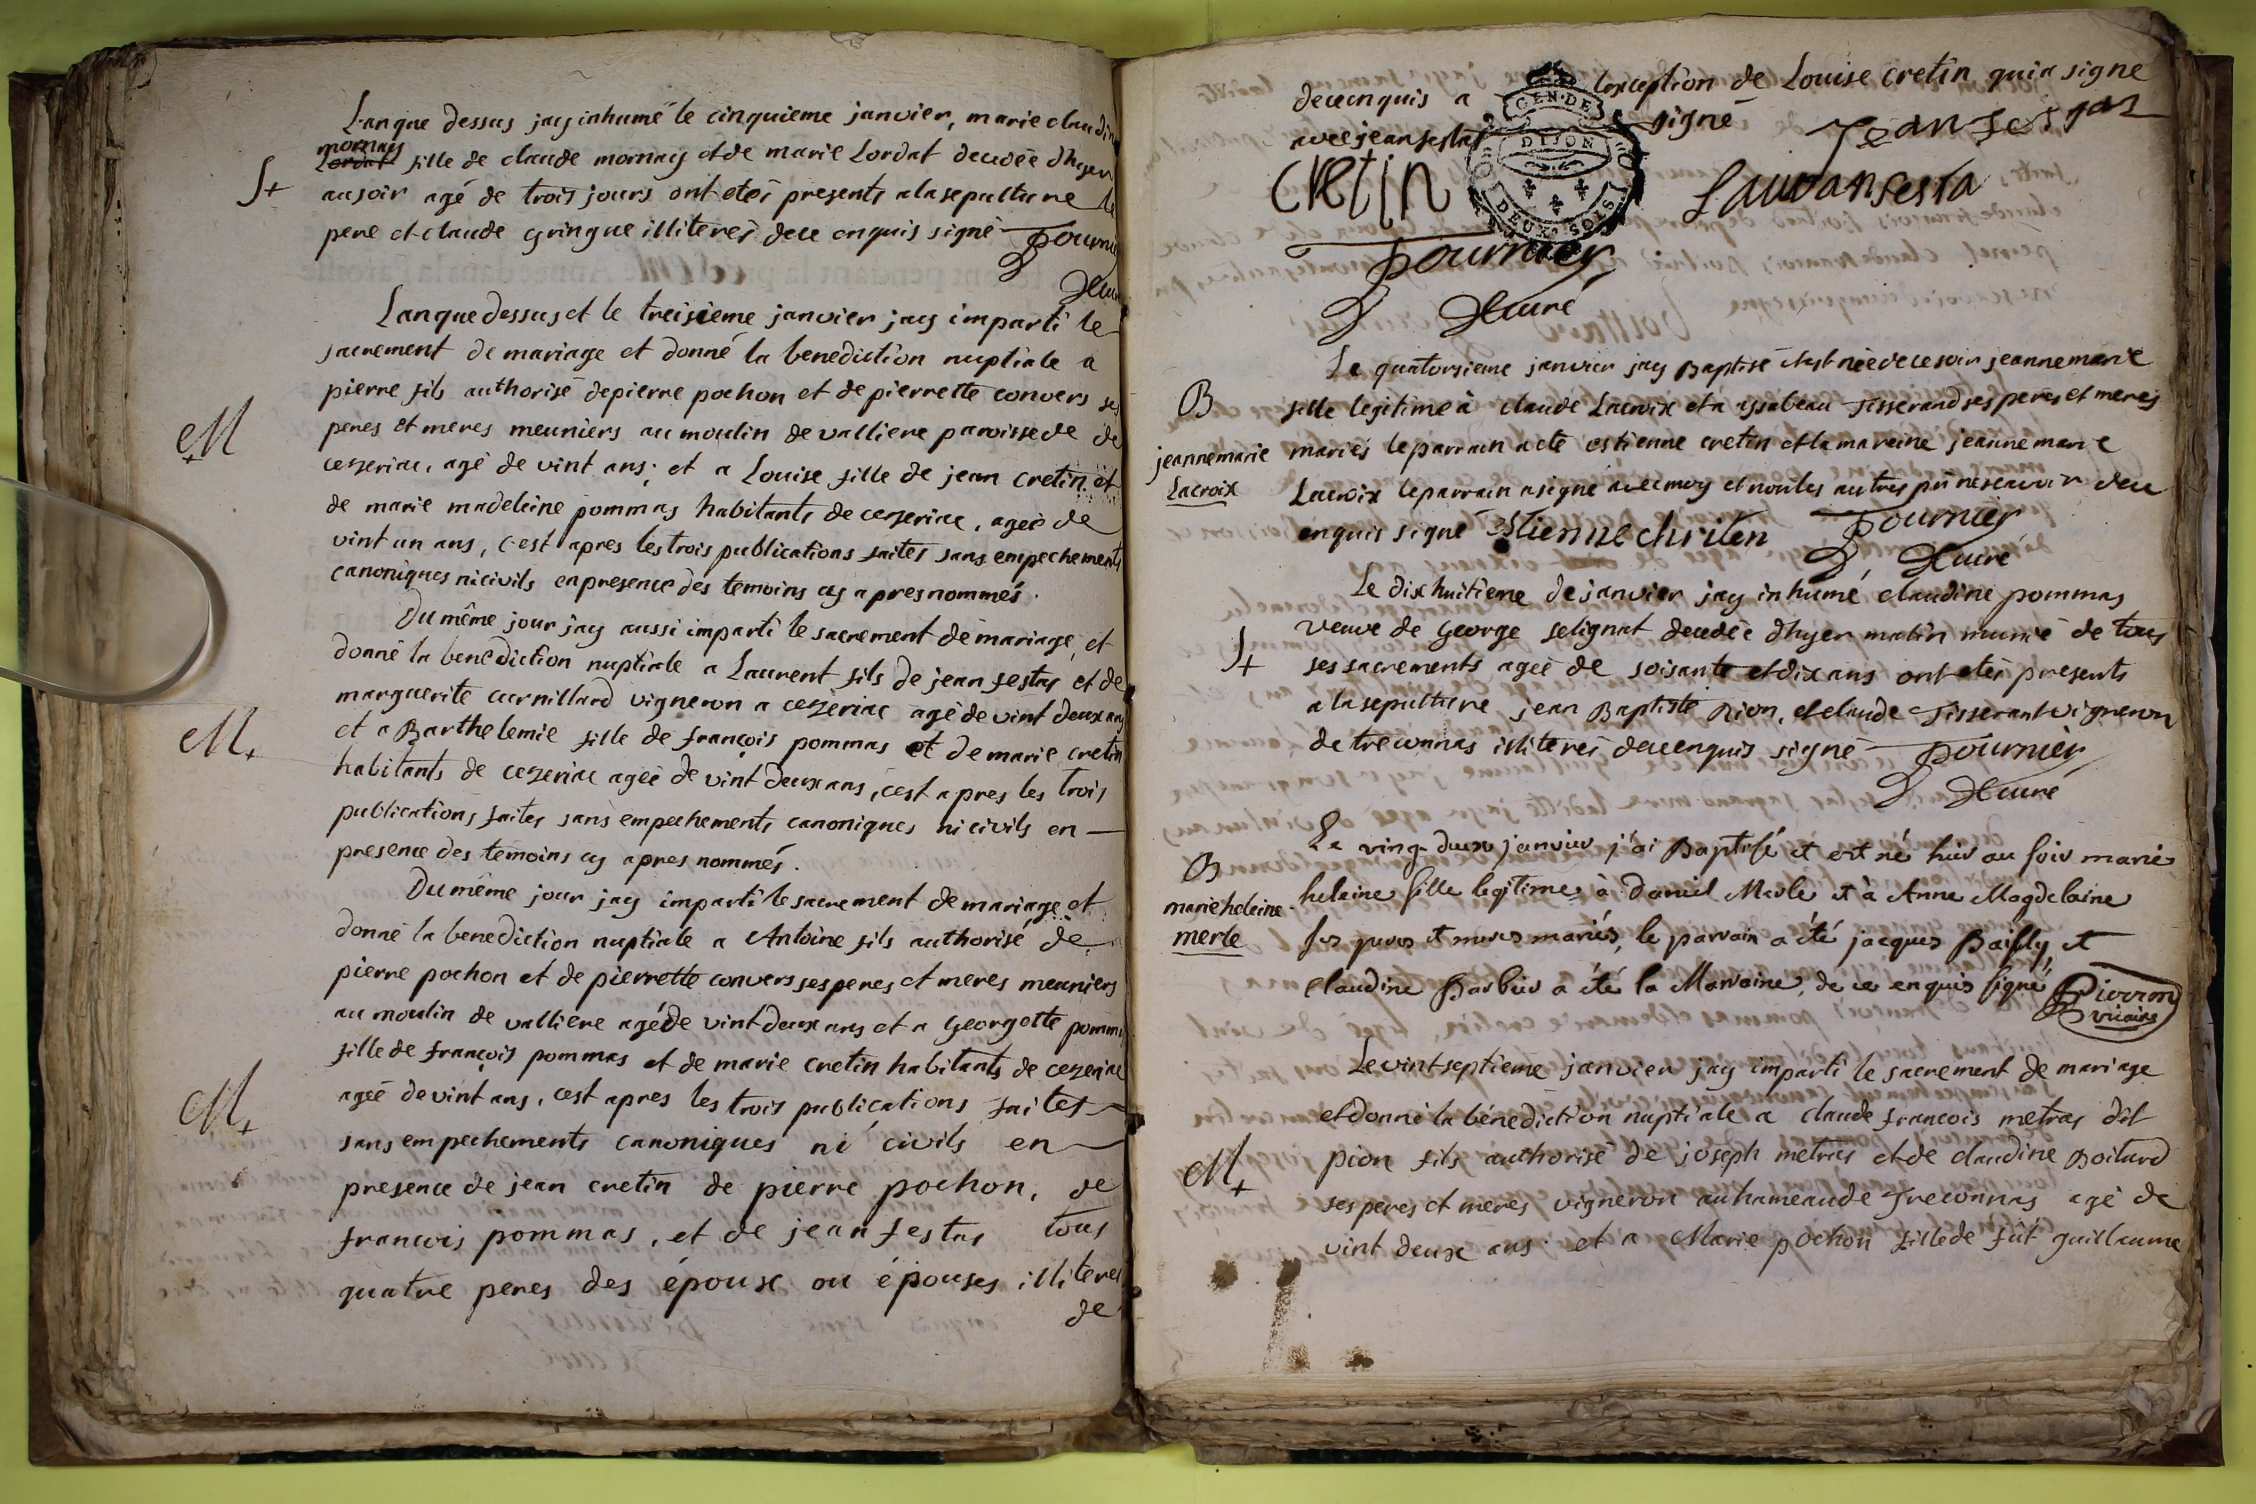 L'anque dessus jay inhumé le cinquieme janvier, marie claudin
mornay
Lordat fille de claude mornay et de marie Lordat decedée dhyer
S+
au soir agé de trois jours ont etés presents a la sepulture le
pere et claude gringue illiterés de ce enquis signé Fournier
Curé
L'anque dessus et le treisieme janvier jay imparti le
sacrement de mariage et donné la benediction nuptiale a
pierre fils authorisé de pierre pochon et de pierrette convers ses
M+
peres et meres meuniers au moulin de valliere paroisse de de
cezeriac, agé de vint ans; et a Louise fille de jean cretin et
de marie madeleine pommas habitants de cezeriac, ageé de
vint un ans, c'est apres les trois publications faites sans empechements
canoniques ni civils en presence des temoins cy apres nommés.
Du même jour jay aussi imparti le sacrement de mariage, et
donné la benediction nuptiale a Laurent fils de jean festas et de
marguerite curnillard vigneron a cezeriac agé de vint deux ans
M+
et a Barthelemie fille de françois pommas et de marie cretin
habitants de cezeriac ageé de vint deux ans, cest apres les trois
publications faites sans empechements canoniques ni civils en
presence des temoins cy apres nommés.
Du même jour jay imparti le sacrement de mariage et
donné la benediction nuptiale a Antoine fils authorisé de
pierre pochon et de pierrette convers ses peres et meres meuniers
au moulin de valliere agé de vint deux ans et a Georgette pommas
fille de françois pommas et de marie cretin habitants de cezeriac
M+
ageé de vint ans, cest apres les trois publications faites
sans empechements canoniques ni civils en
presence de jean cretin de pierre pochon, de
francois pommas, et de jean festas tous
quatre peres des époux ou épouses illiteres
de
de ce enquis a lexception de Louise cretin qui a signé
avec jean festas signé jean festas
GEN·DE
DIJON
DEUX·SOLS
cretin
Fournier
Curé
Le quatorsieme janvier jay Baptisé et est née de ce soir jeanne marie
B
fille legitime à claude Lacroix et a issabeau Tisserand ses peres et meres
jeanne marie
Lacroix
mariés le parrain a eté estienne cretin et la mareine jeanne marie
Lacroix le parrain a signé avec moy et non les autres pr ne scavoir de ce
enquis signé Estienne chriten Fournier
Curé
Le dix huitieme de janvier jay inhumé claudine pommas
veuve de George selignat decedée dhyer matin munie de tous
S+
ses sacrements ageé de soisante et dix ans ont etés presents
a la sepulture jean Baptiste Rion, et claude Tisserant vigneron
de treconnas illiterés de ce enquis signé Fournier
Curé
Le vingt deux janvier j'ai Baptisé et est né hier au soir marie
B
marie heleine
merle
helaine fille legitime à Daniel Merle et à Anne Magdelaine
ses peres et meres mariés, le parrain a été jacques Bailly et
claudine Barbier a été la Marraine, de ce enquis signé Pierron
vicaire
Le vint septieme janvier jay imparti le sacrement de mariage
et donné la bénediction nuptiale a claude françois metras dit
M+
pion fils authorisé de joseph metras et de claudine Boitard
ses peres et meres vigneron au hameau de Treconnas agé de
vint deux ans et a Marie pochon fille de fût guillaume